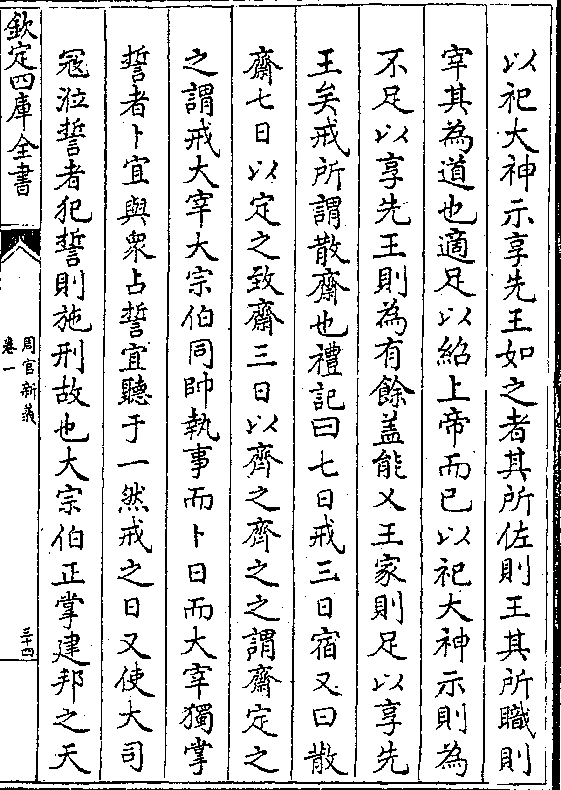 以祀大神示享先王如之者其所佐則王其所職則
宰其為道也適足以紹上帝而已以祀大神示則為
不足以享先王則為有餘盖能乂王家則足以享先
王矣戒所謂散齋也禮記曰七日戒三日宿又曰散
齋七日以定之致齋三日以齊之齊之之謂齋定之
之謂戒大宰大宗伯同帥執事而卜日而大宰獨掌
誓者卜宜與衆占誓宜聽于一然戒之日又使大司
冦涖誓者犯誓則施刑故也大宗伯正掌建邦之天
欽定四庫全書
周官新義
卷一
三十四